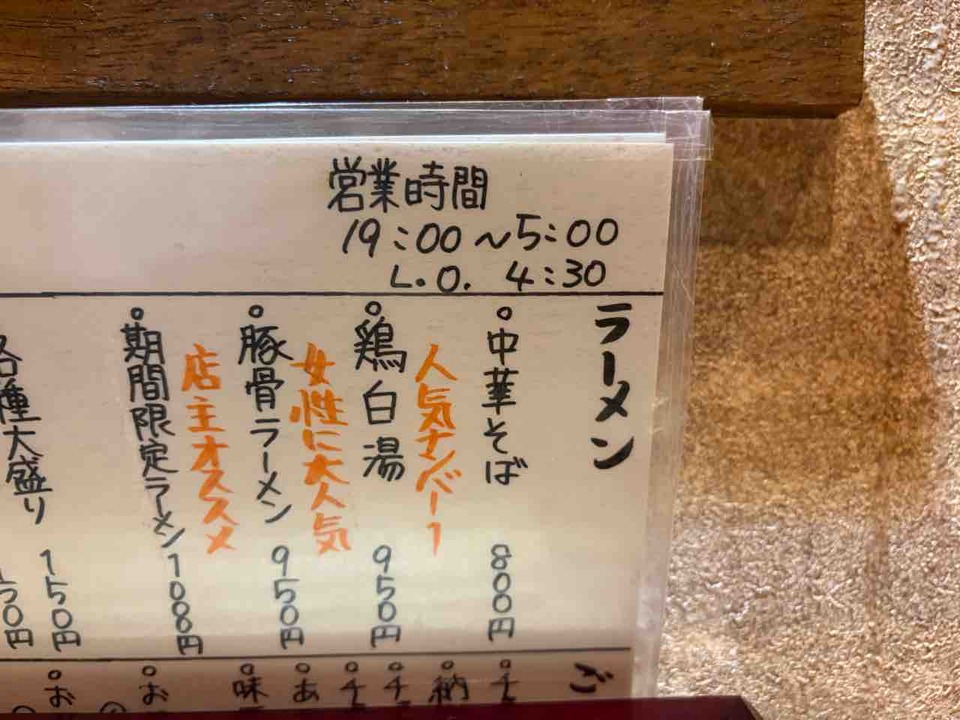 営業時間
19:00〜5:00
L.O. 4:30
ラーメン
中華そば 800円
人気ナンバー1
鶏白湯 950円
女性に大人気
豚骨ラーメン 950円
店主オススメ
期間限定ラーメン 1000円
各種大盛り 150円
ご
納
あ
味
お
お